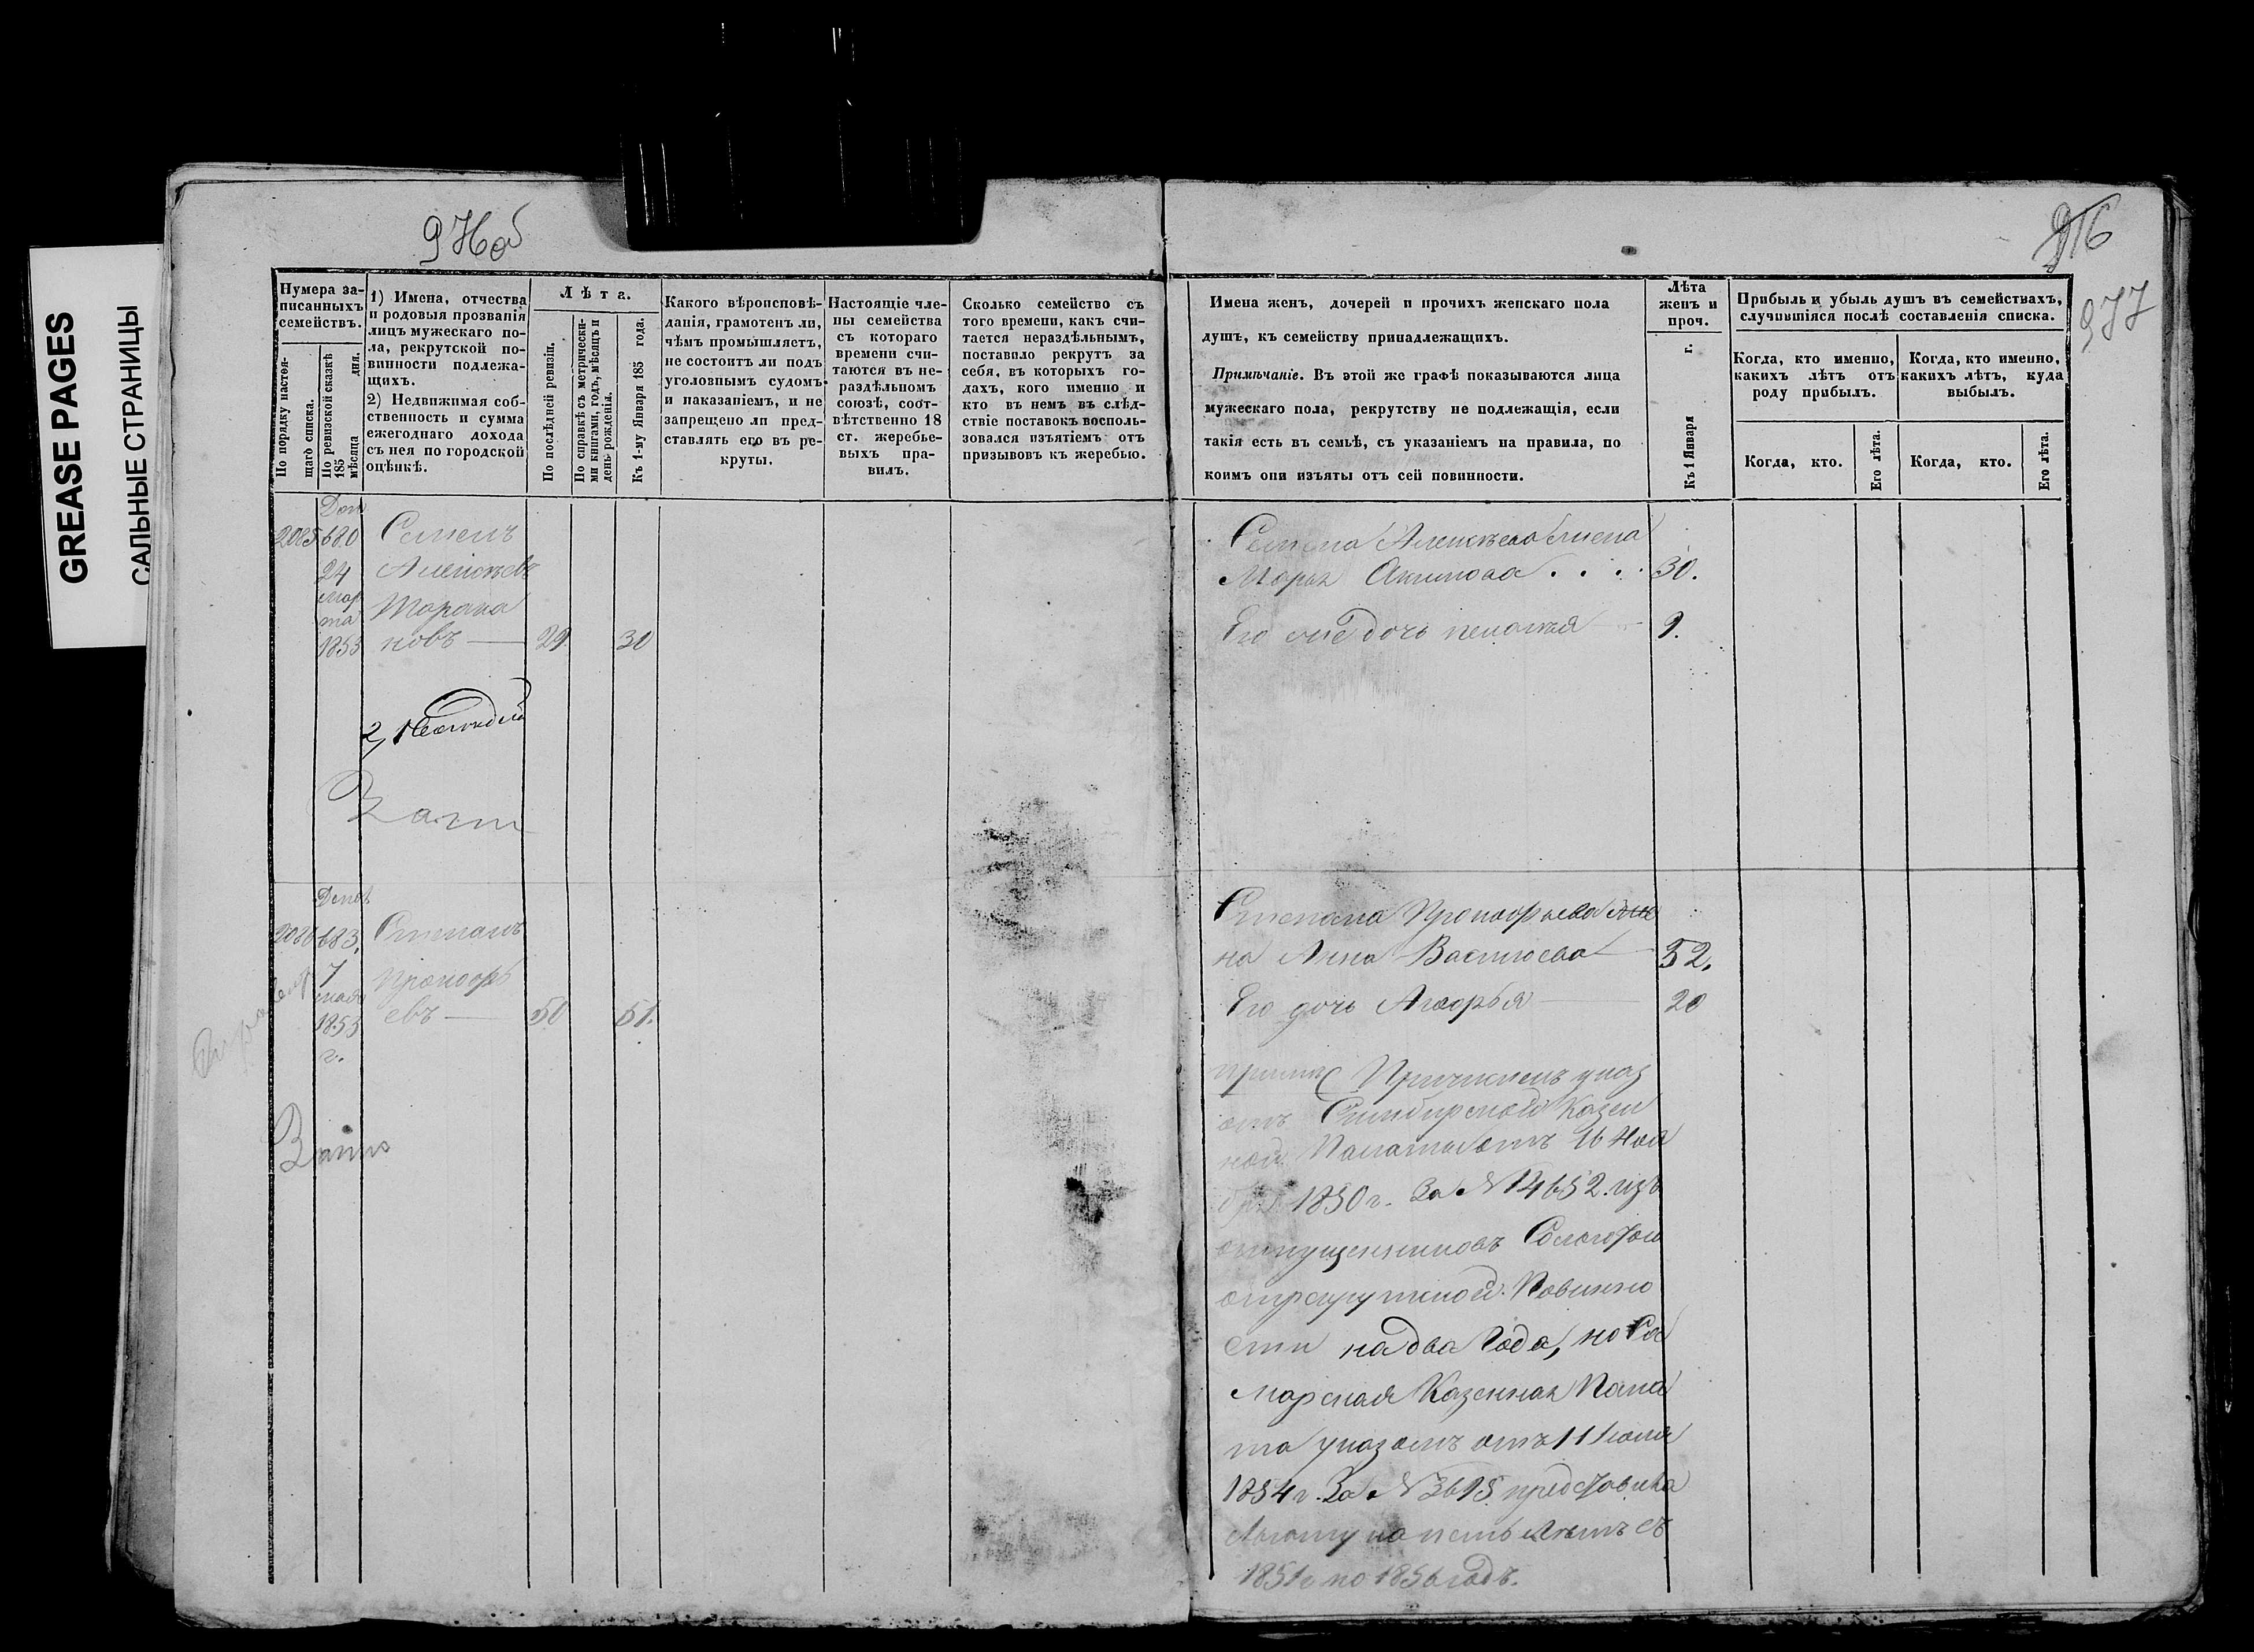 GREASE PAGES
САЛЬНЫЕ СТРАНИЦЫ
976об
916
977
Нумера за-
писанныхъ
семействъ.
По порядку настоя-
щаго списка.
По ревизской сказкѣ
185 мѣсяца дня.
1) Имена, отчества
и родовыя прозванія
лицъ мужескаго по-
ла, рекрутской по-
винности подлежа-
щихъ.
2) Недвижимая соб-
ственность и сумма
ежегоднаго дохода
съ нея по городской
оцѣнкѣ.
Лѣта.
По послѣдней ревизіи.
По справкѣ съ метрически-
ми книгами, годъ, мѣсяцъ и
день рожденія.
Къ 1-му Января 185 года.
Какого вѣроисповѣ-
данія, грамотенъ ли,
чѣмъ промышляетъ,
не состоитъ ли подъ
уголовнымъ судомъ
и наказаніемъ, и не
запрещено ли пред-
ставлять его въ ре-
круты.
Настоящіе чле-
ны семейства
съ котораго
времени счи-
таются въ не-
раздѣльномъ
союзѣ, соот-
вѣтственно 18
ст. жеребье-
выхъ пра-
вилъ.
Сколько семейство съ
того времени, какъ счи-
тается нераздѣльнымъ,
поставило рекрутъ за
себя, въ которыхъ го-
дахъ, кого именно и
кто въ немъ въ слѣд-
ствіе поставокъ восполь-
зовался изъятіемъ отъ
призывовъ къ жеребью.
Имена женъ, дочерей и прочихъ женскаго пола
душъ, къ семейству принадлежащихъ.
Примѣчаніе. Въ этой же графѣ показываются лица
мужескаго пола, рекрутству не подлежащія, если
такія есть въ семьѣ, съ указаніемъ на правила, по
коимъ они изъяты отъ сей повинности.
Лѣта
женъ и
проч.
Къ 1 Января г.
Прибыль и убыль душъ въ семействахъ,
случившіяся послѣ составленія списка.
Когда, кто именно,
какихъ лѣтъ отъ
роду прибылъ.
Когда, кто именно,
какихъ лѣтъ, куда
выбылъ.
Когда, кто.
Его лѣта.
Когда, кто.
Его лѣта.
Доп
2085 680 Семенъ
24 Алексѣевъ
мар Торана
та
1853 новъ — 29 30
Семена Алексѣева жена
Марья Акимова . . . . 30.
Его же дочь Пелагѣя — 9.
2085 683. Степанъ
7 Прокофь
мая
1853 евъ — 50 51.
г.
Степана Прокофьева же
на Анна Васильева — 52.
Его дочь Агафья — 20
Причисленъ указ
отъ Симбирской Казен
ной Палаты отъ 16 Ноя
бря 1850 г. За № 14652. изъ
отпущенниковъ Сольготой
отрекрутской Повинно
сти на два Года, но Са
марская Казенная Пала
та указомъ отъ 11 Іюля
1854 г. За № 3615 предоставила
Льготу на пять Лѣтъ съ
1851 г по 1856 годъ.